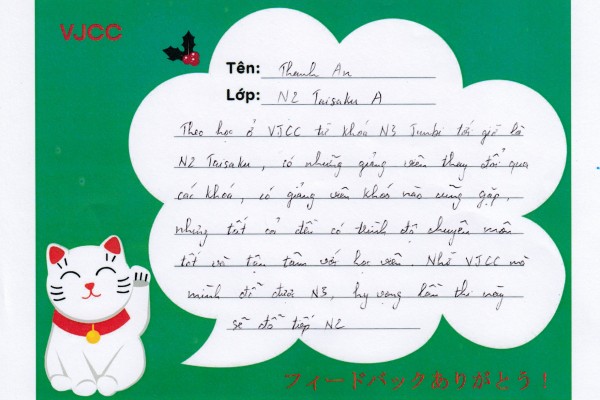 VJCC
Tên: Thanh An
Lớp: N2 Taisaku A
Theo học ở VJCC từ khóa N3 Junbi tới giờ là
N2 Taisaku, có những giảng viên thay đổi qua
các khóa, có giảng viên khóa nào cũng gặp,
nhưng tất cả đều có trình độ chuyên môn
tốt và tận tâm với học viên. Nhờ VJCC mà
mình đỗ được N3, hy vọng lần thi này
sẽ đỗ tiếp N2
フィードバックありがとう!